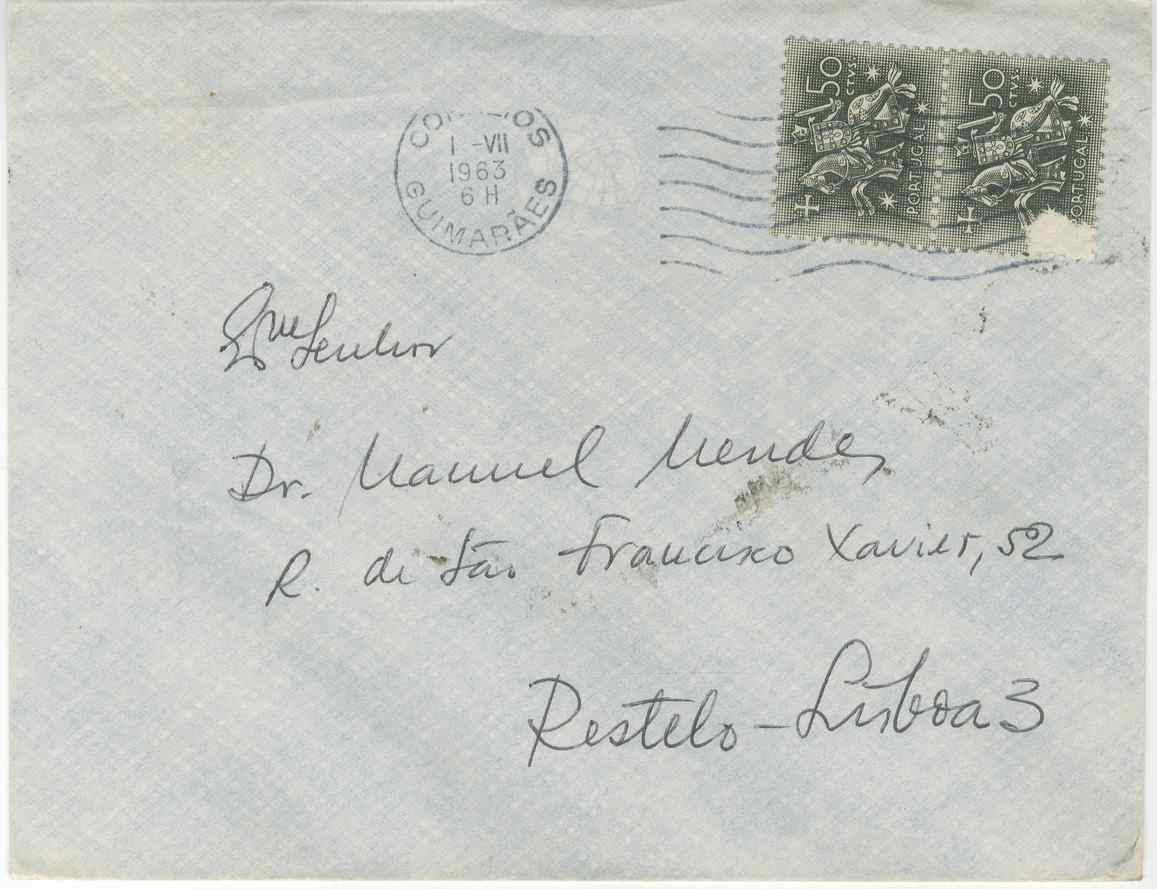 CORREIOS
1 -VII
1963
6 H
GUIMARÃES
50
CTVS.
PORTUGAL
50
CTVS.
PORTUGAL
Exmº Senhor
Dr. Manuel Mendes
R. de São Francisco Xavier, 52
Restelo - Lisboa 3